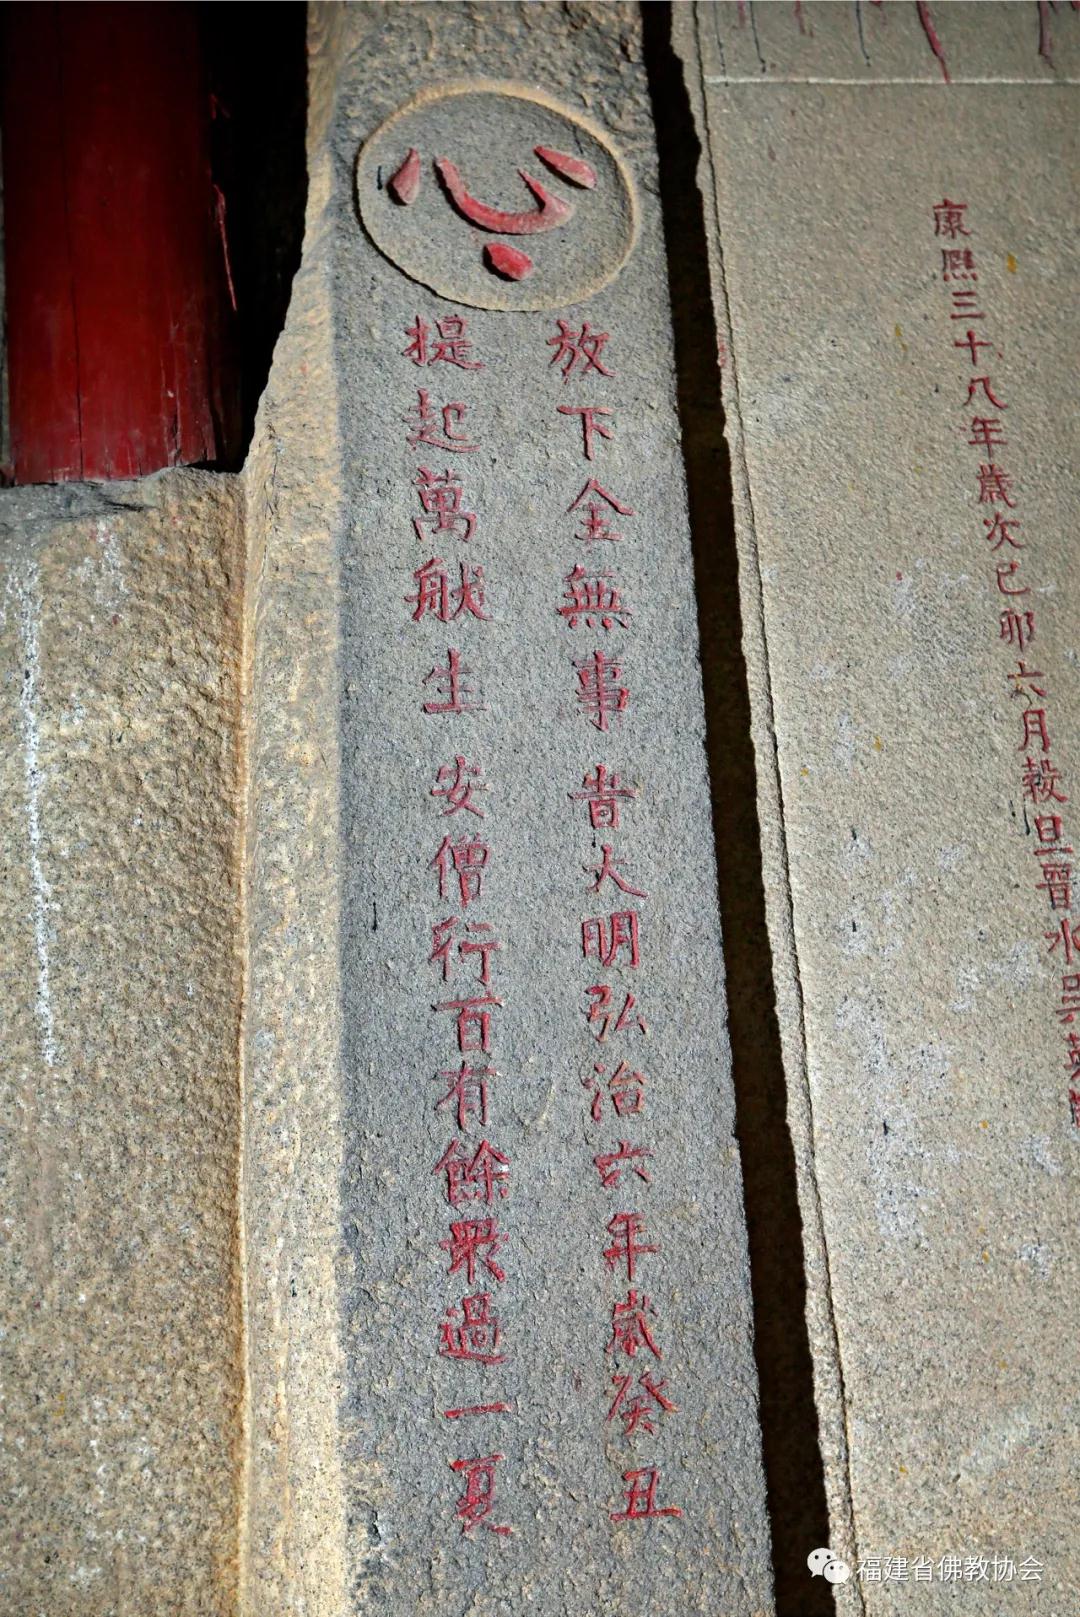 康熙三十八年歲次己卯六月穀旦晉水吳英
心
放下全無事旹大明弘治六年歲癸丑
提起萬般生安僧行百有餘眾過一夏
福建省佛教协会